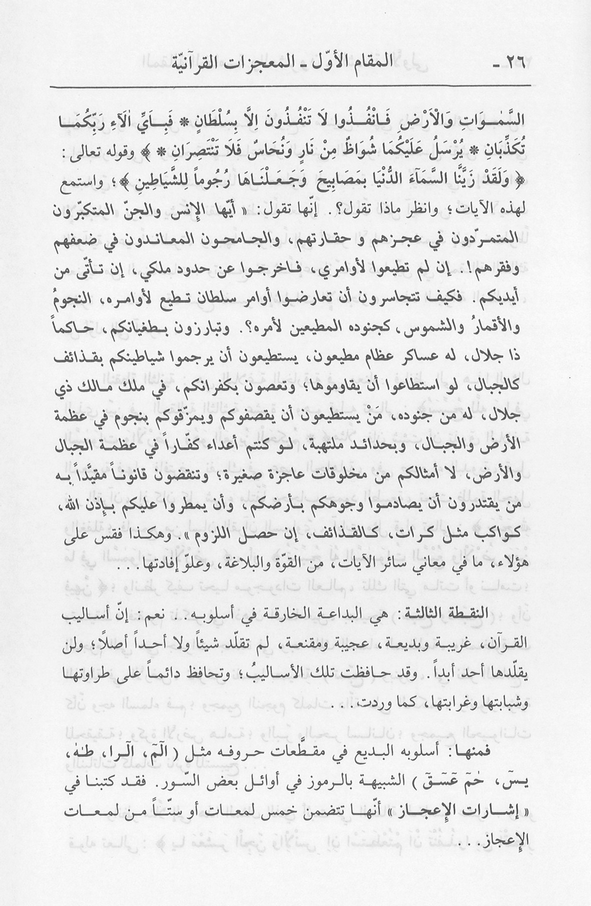 المقام الأوّل ـ المعجزات القرآنيّة
٢٦ ـ
السَّمٰوَاتِ وَالْاَرْضِ فَانْفُذُوا لَا تَنْفُذُونَ اِلَّا بِسُلْطَانٍ * فَبِاَيِّ اٰلَاءِ رَبِّكُمَا
تُكَذِّبَانِ * يُرْسَلُ عَلَيْكُمَا شُوَاظٌ مِنْ نَارٍ وَنُحَاسٌ فَلَا تَنْتَصِرَانِ * ﴾ وقوله تعالى:
﴿ وَلَقَدْ زَيَّنَّا السَّمَآءَ الدُّنْيَا بِمَصَابِيحَ وَجَعَلْنَاهَا رُجُوماً لِلشَّيَاطِينِ ﴾؛ واستمع
لهذه الآيات؛ وانظر ماذا تقول؟. إنّها تقول: « أيّها الإنس والجنّ المتكبّرون
المتمرّدون في عجزهم و حقارتهم، والجامحون المعاندون في ضعفهم
وفقرهم!. إن لم تطيعوا لأوامري، فاخرجوا عن حدود ملكي، إن تأتّى من
أيديكم. فكيف تتجاسرون أن تعارضوا أوامر سلطان تطيع لأوامره، النجومُ
والأقمارُ والشموس، كجنوده المطيعين لأمره؟. وتبارزون بطغيانكم، حاكماً
ذا جلال، له عساكر عظام مطيعون، يستطيعون أن يرجموا شياطينكم بقذائف
كالجبال، لو استطاعوا أن يقاوموها؛ وتعصون بكفرانكم، في ملك مالك ذي
جلال، له من جنوده، مَنْ يستطيعون أن يقصفوكم ويمزّقوكم بنجوم في عظمة
الأرض والجبال، وبحدائد ملتهبة، لو كنتم أعداء كفّاراً في عظمة الجبال
والأرض، لا أمثالكم من مخلوقات عاجزة صغيرة؛ وتنقضون قانوناً مقيَّداً به
من يقتدرون أن يصادموا وجوهكم بأرضكم، وأن يمطروا عليكم بإذن الله،
كواكب مثل كرات، كالقذائف، إن حصل اللزوم ». وهكذا فقس على
هؤلاء، ما في معاني سائر الآيات، من القوّة والبلاغة، وعلوّ إفادتها...
النقطة الثالثة: هي البداعة الخارقة في أسلوبه.. نعم: إنّ أساليب
القرآن، غريبة وبديعة، عجيبة ومقنعة، لم تقلّد شيئاً ولا أحداً أصلًا؛ ولن
يقلّدها أحد أبداً. وقد حافظت تلك الأساليبُ؛ وتحافظ دائماً على طراوتها
وشبابتها وغرابتها، كما وردت...
فمنها: أسلوبه البديع في مقطّعات حروفه مثل ( الٓمٓ، الٓرا، طٰهٰ،
يسٓ، حٰمٓ عٓسٓقٓ ) الشبيهة بالرموز في أوائل بعض السّور. فقد كتبنا في
« إشارات الإعجاز » أنّها تتضمن خمس لمعات أو ستّاً من لمعات
الإعجاز...